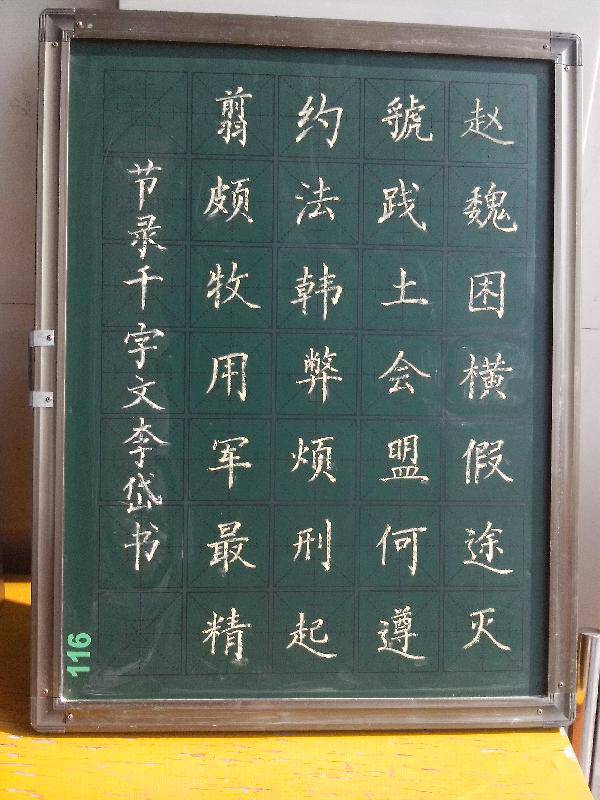 赵魏困横假途灭
虢践土会盟何遵
约法韩弊烦刑起
翦颇牧用军最精
节录千字文李岱书
116